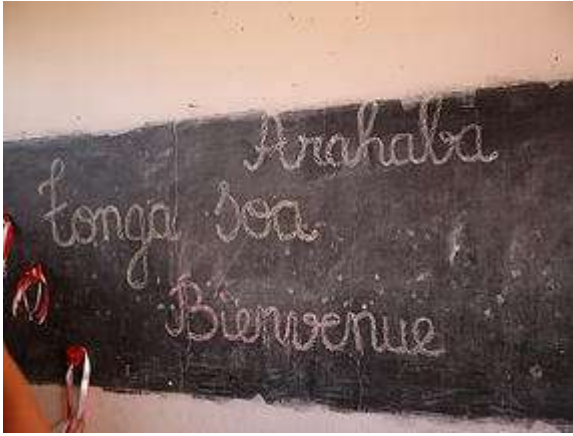 Arahaba
Tonga soa
Bienvenue